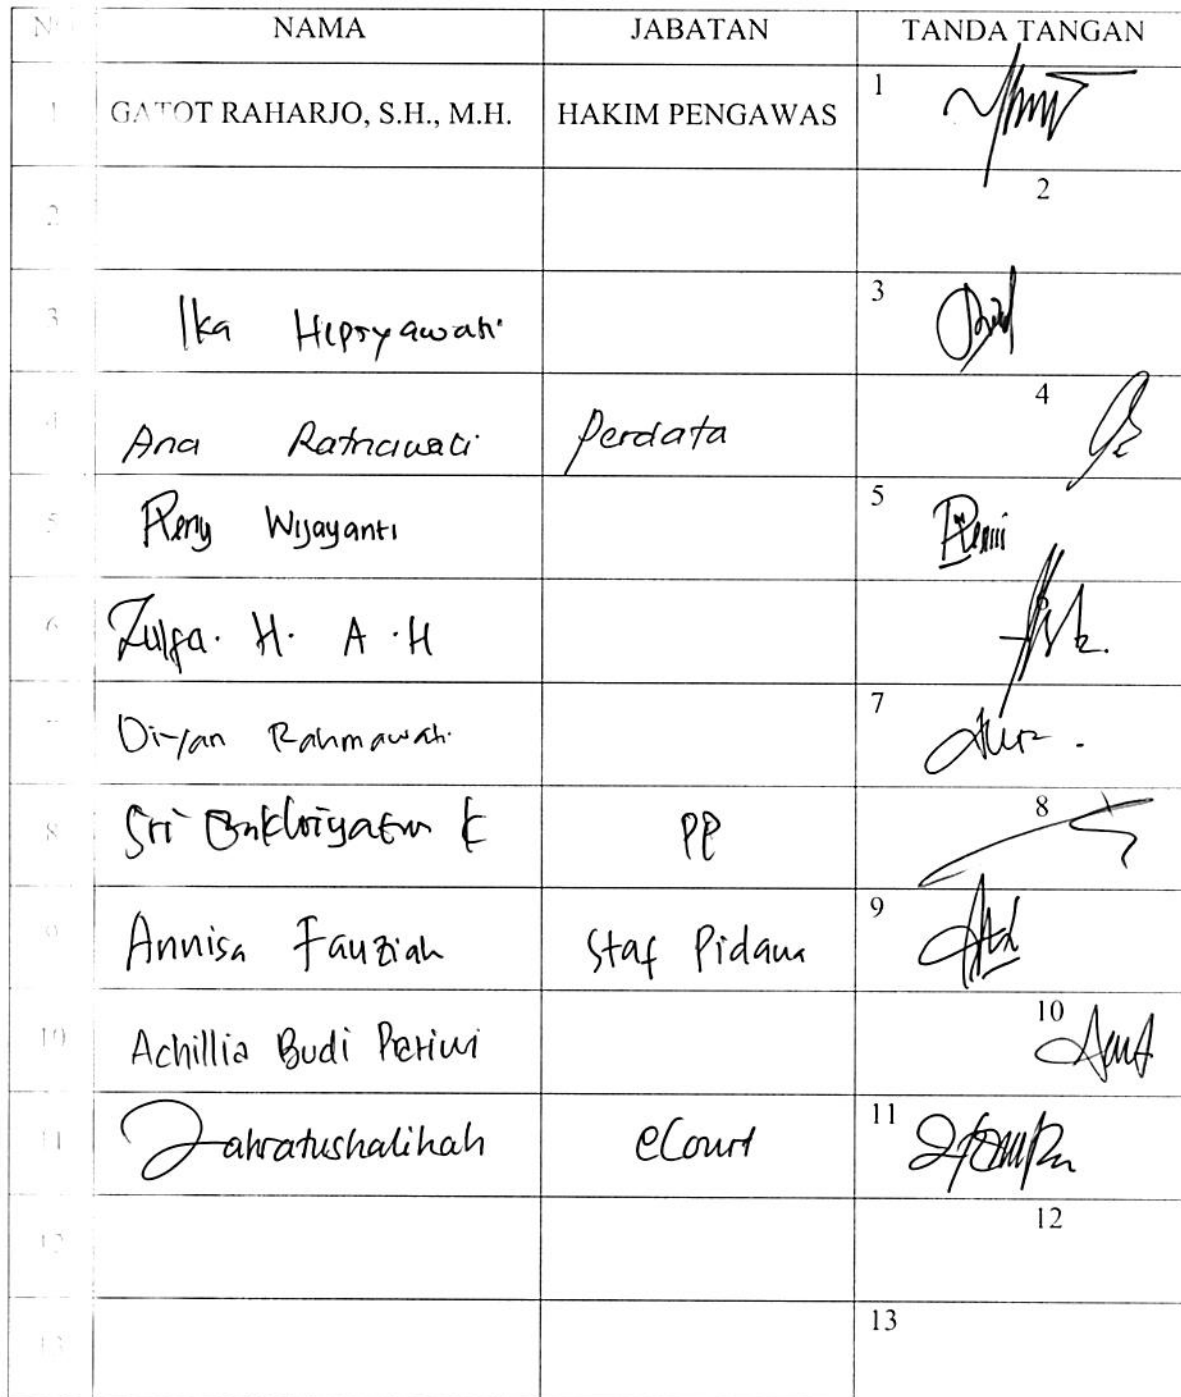 NO NAMA JABATAN TANDA TANGAN
1 GATOT RAHARJO, S.H., M.H. HAKIM PENGAWAS 1
2 2
3 Ika Hepsyawati 3
4 Ana Ratnawati Perdata 4
5 Reny Wijayanti 5
6 Zulfa. H. A. H 6
7 Diyan Rahmawati 7
8 Sri K PP 8
9 Annisa Fauziah Staf Pidana 9
10 Achillia Budi Pertiwi 10
11 Zahratushalihah eCourt 11
12 12
13 13